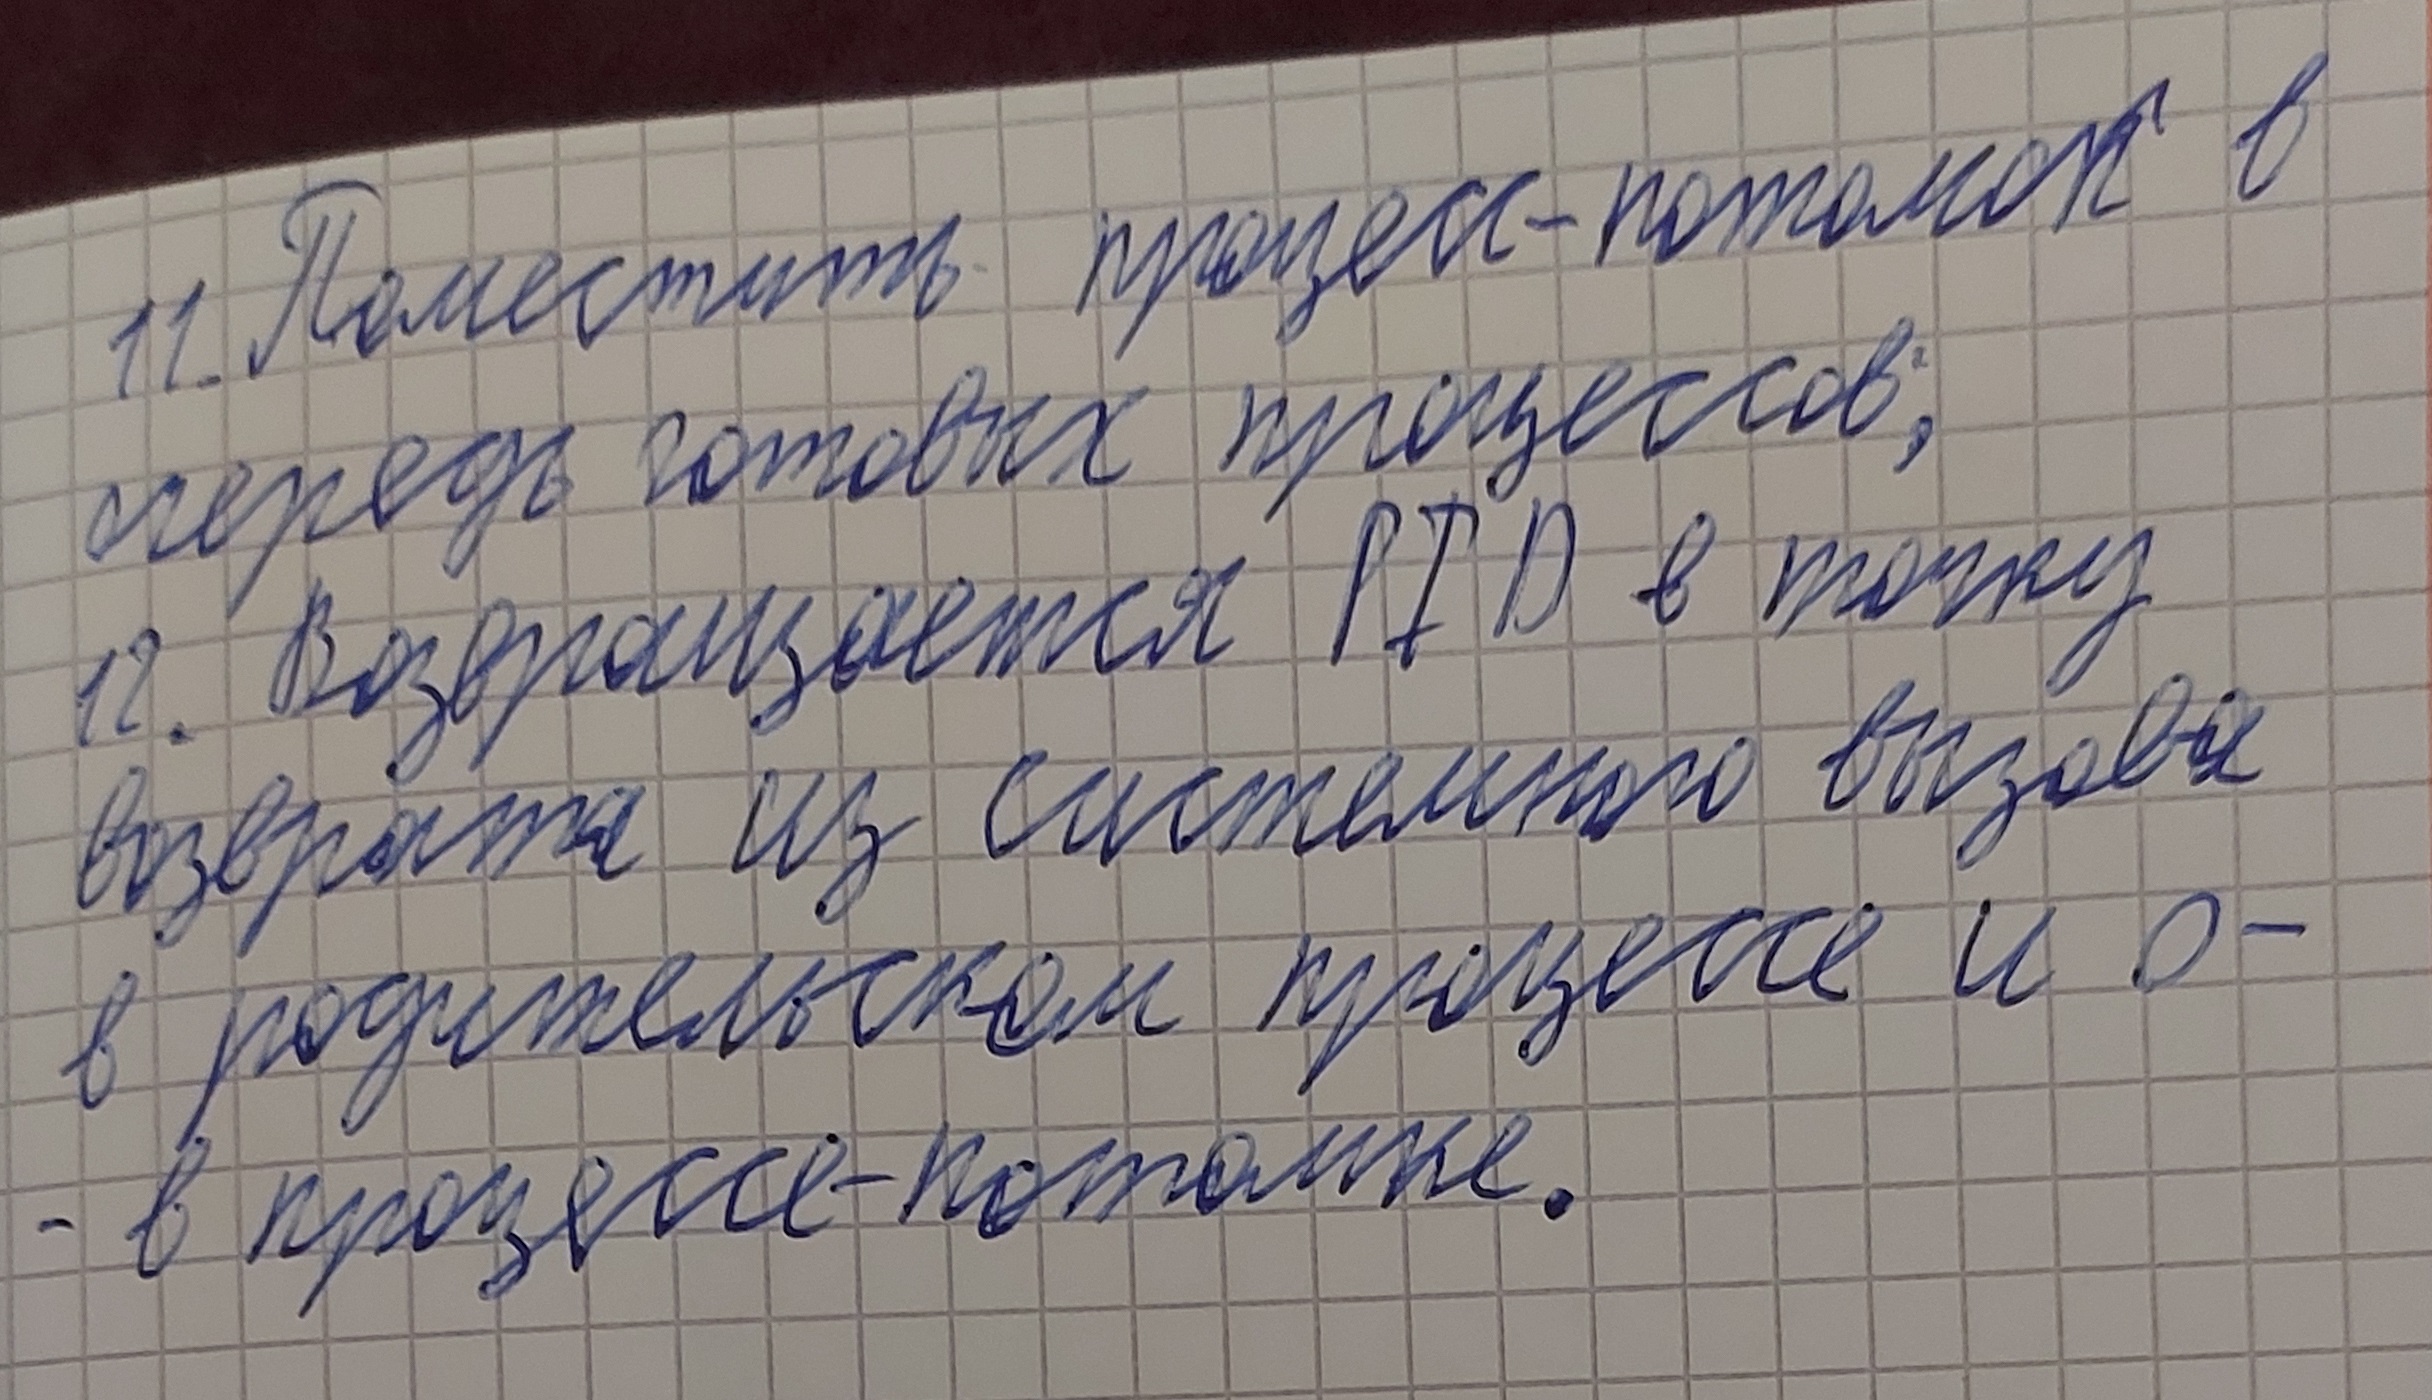 11. Поместить процесс-потомок в
очередь готовых процессов;
12. Возвращается PID в точку
возврата из системного вызова
в родительском процессе и 0-
- в процессе-потомке.